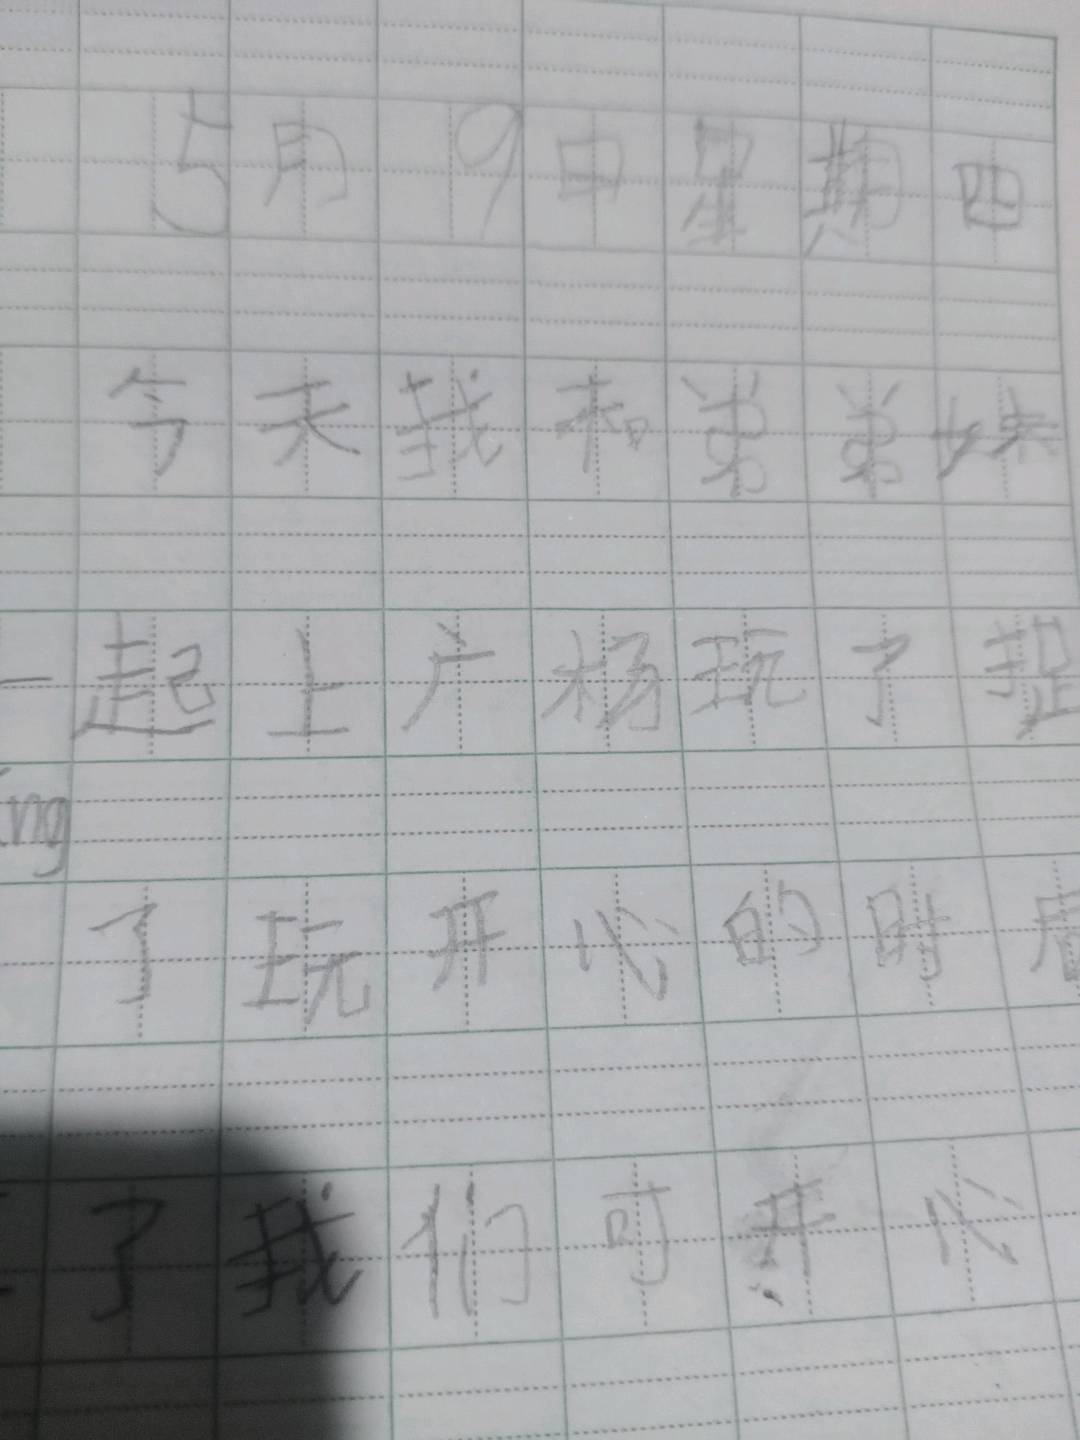 5月9日星期四
今天我和弟弟妹
一起上广杨玩了捉
ing
了玩开心的时
了我们可开心